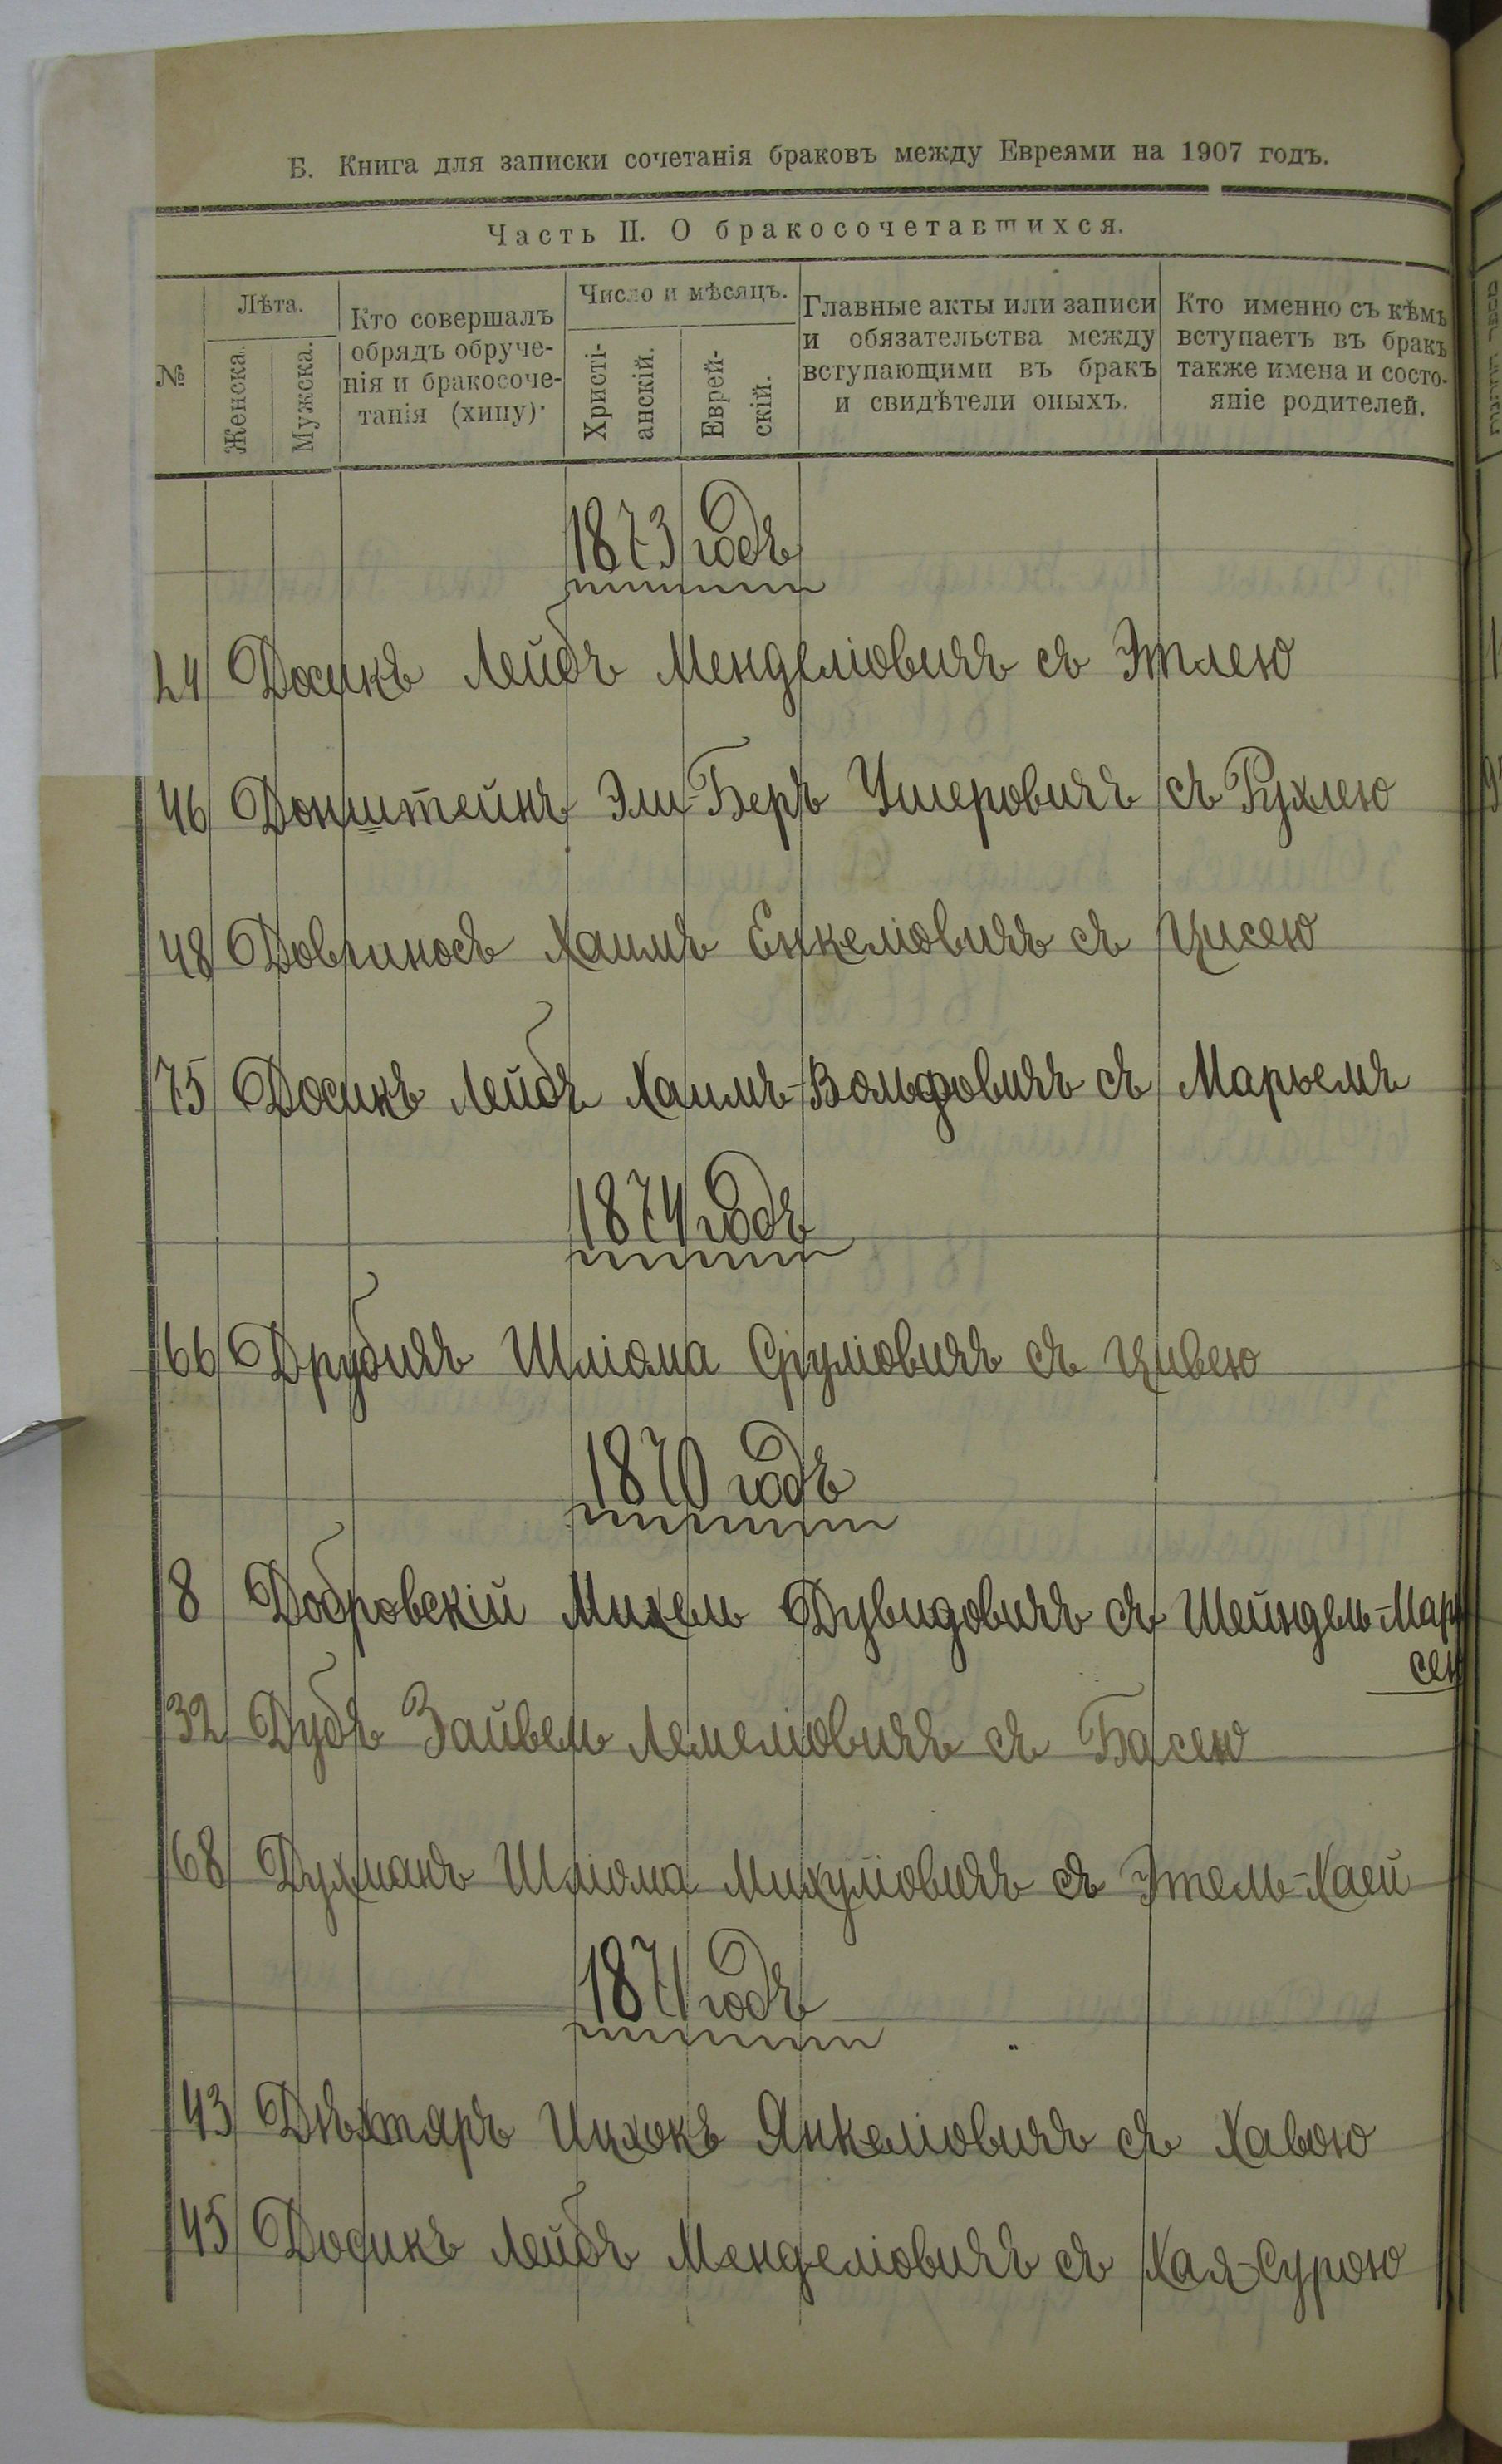 Б. Книга для записки сочетанія браковъ между Евреями на 1907 годъ.
Часть II. О бракосочетавшихся.
№
Лѣта.
Женска.
Мужска.
Кто совершалъ
обрядъ обруче-
нія и бракосоче-
танія (хипу).
Число и мѣсяцъ.
Христі-
анскій.
Еврей-
скій.
Главные акты или записи
и обязательства между
вступающими въ бракъ
и свидѣтели оныхъ.
Кто именно съ кѣмъ
вступаетъ въ бракъ
также имена и состо-
яніе родителей.
1873 годъ
24 Досикъ Лейбъ Менделіовичъ съ Этлею
46 Донштейнъ Эли-Беръ Ушеровичъ съ Рухлею
48 Довгиносъ Хаимъ Енкеліовичъ съ Цисею
75 Досикъ Лейбъ Хаимъ-Вольфовичъ съ Марьемъ
1874 годъ
66 Друбичъ Шліома Сруліовичъ съ Цивею
1870 годъ
8 Добровскій Михель Дувидовичъ съ Шейндель-Мар
сею
32 Дубъ Зайвель Лемеліовичъ съ Басею
68 Духманъ Шліома Михуліовичъ съ Этель-Хаей
1871 годъ
43 Дѣхтяръ Ицхокъ Янкеліовичъ съ Хавою
45 Досикъ Лейбъ Менделіовичъ съ Хая-Сурою